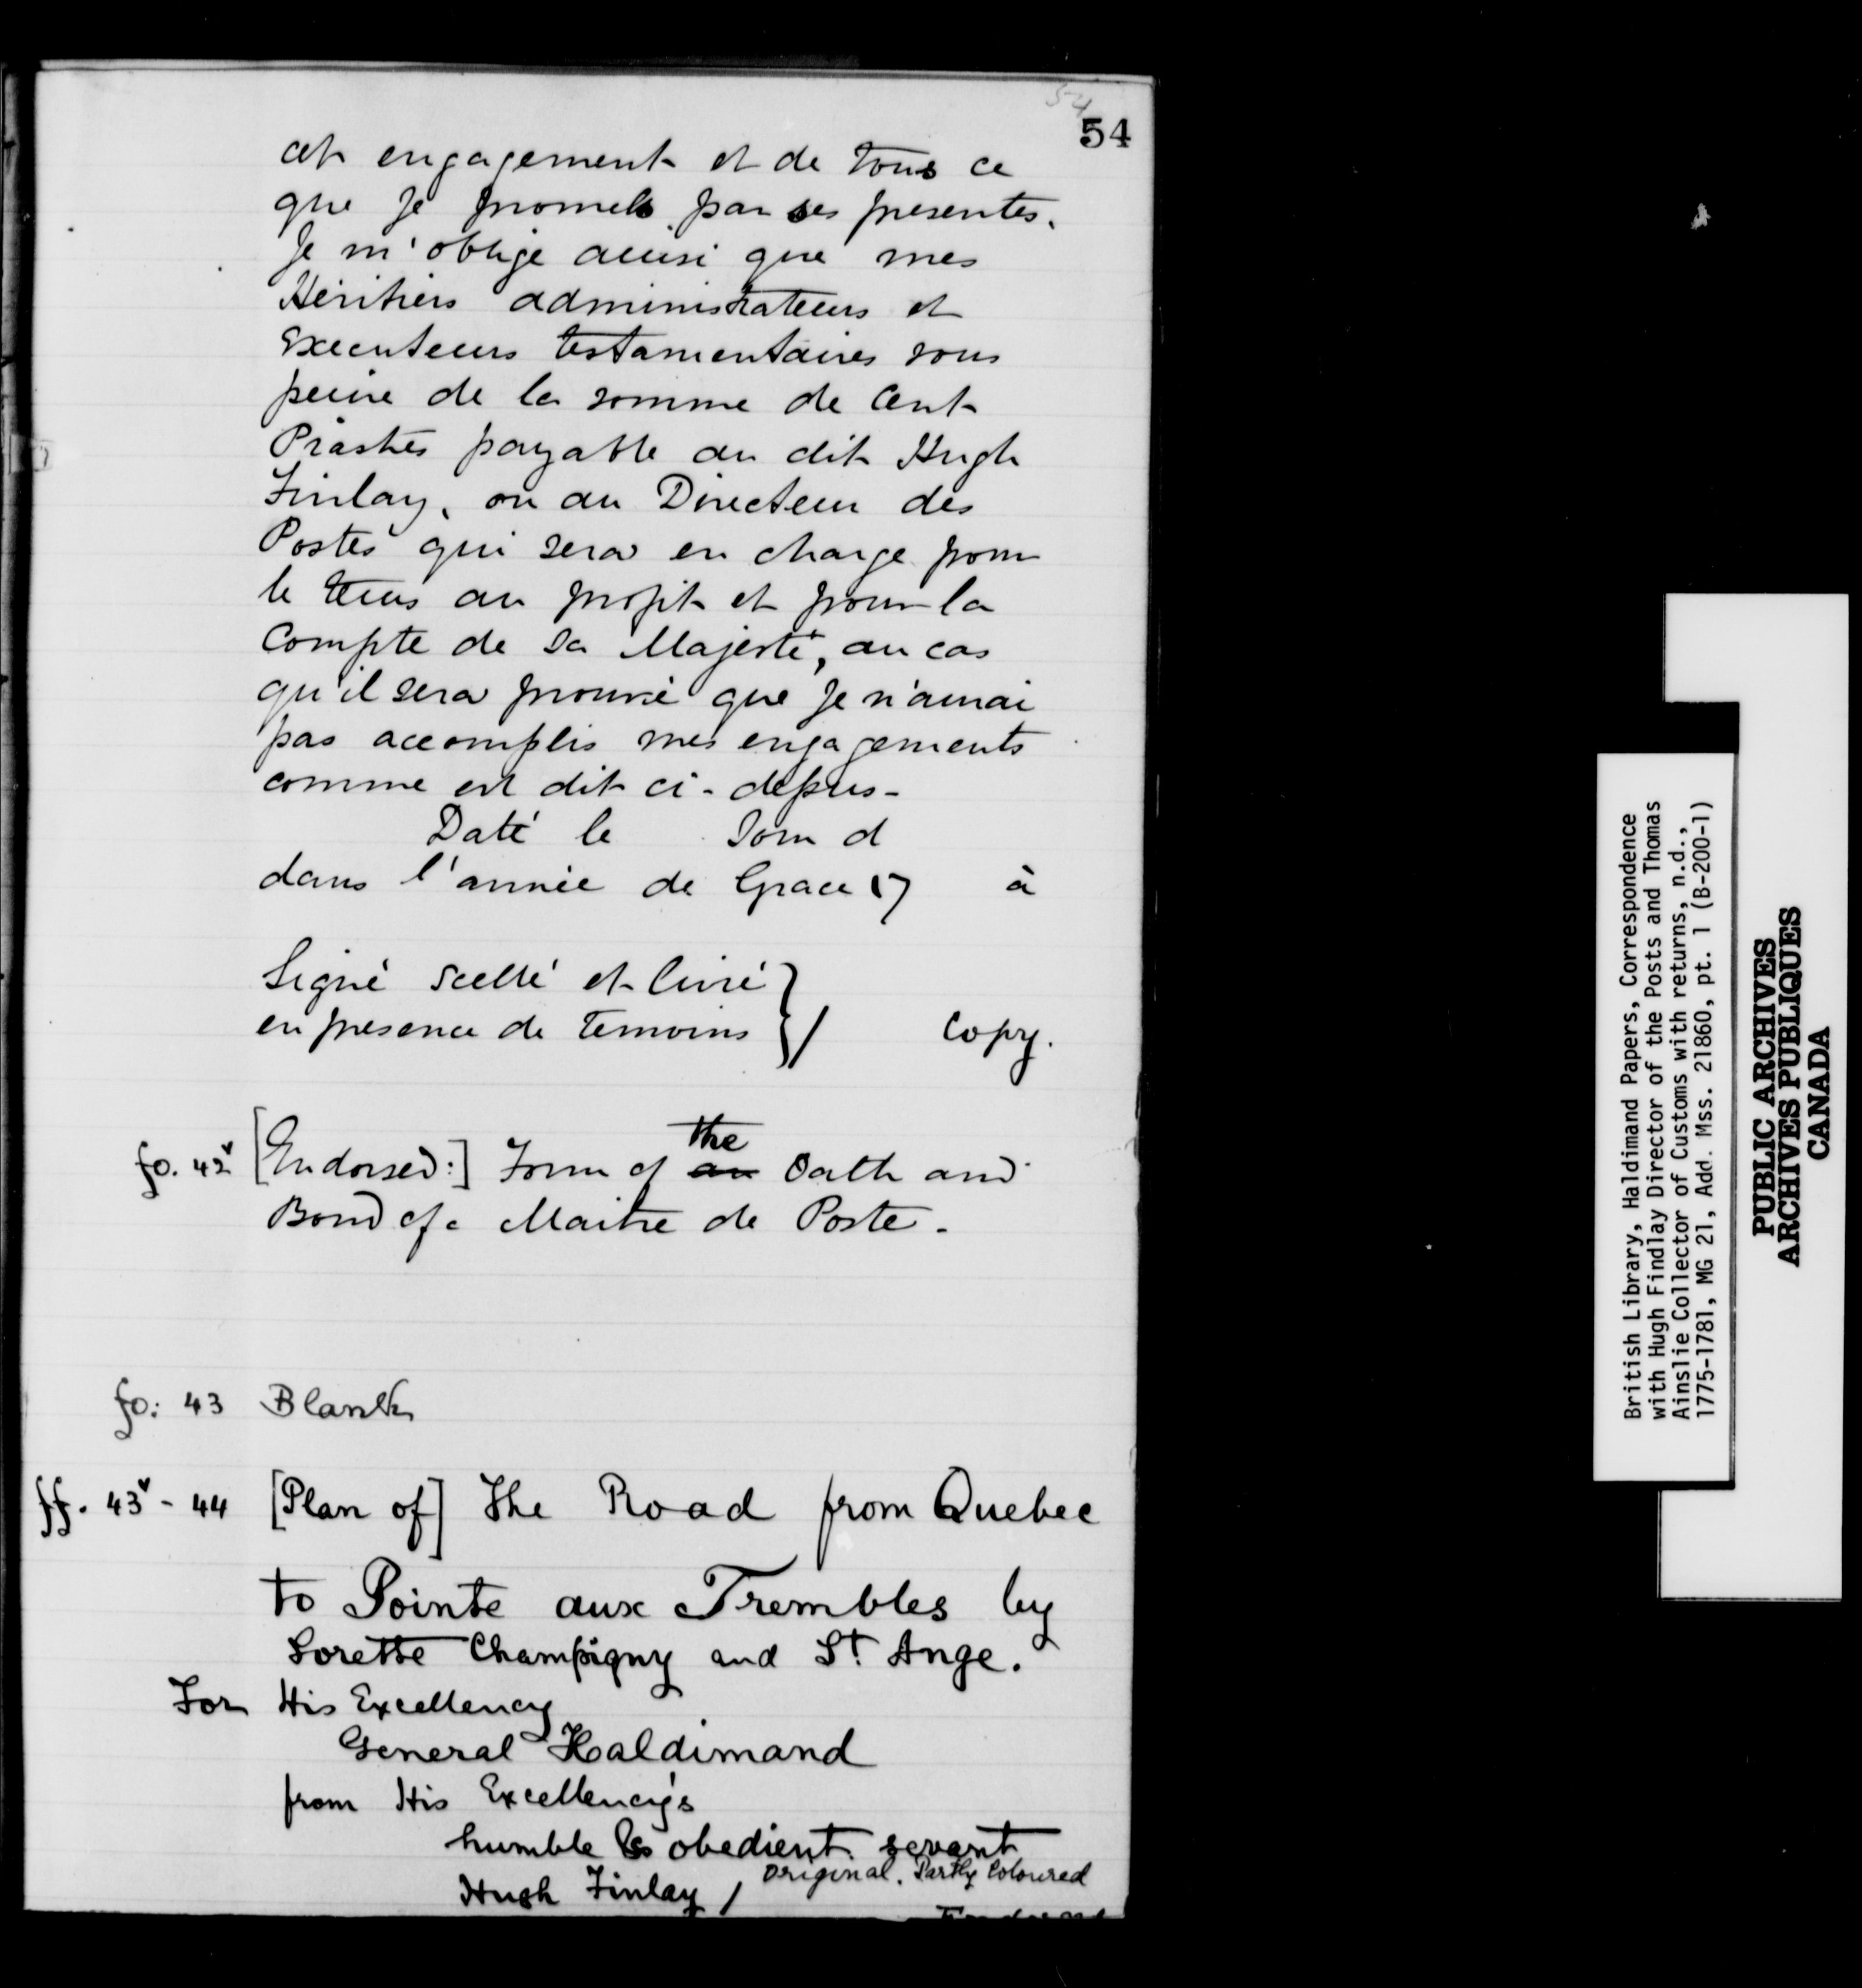 54
54
cet engagement et de tous ce
que Je promets par ses presentes.
Je m'oblige aussi que mes
Héritiers administrateurs et
Executeurs testamentaires sous
peine de la somme de Cent
Piastres payable au dit Hugh
Finlay, ou au Directeur des
Postes qui sera en charge pour
le tems au profit et pour la
Compte de Sa Majesté, au cas
qu'il sera prouvé que Je n'aurai
pas accomplis mes engagements
comme est dit ci-dessus-
Daté le Jour d
dans l'année de Grace 17 à
Signé Scellé et livré }
en presence de temoins } / Copy.
fo. 42v [Endorsed:] Form of an the Oath and
Bond of a Maitre de Poste.
fo: 43 Blank
ff. 43v - 44 [Plan of] The Road from Quebec
to Pointe aux Trembles by
Lorette Champigny and St. Ange.
For His Excellency
General Haldimand
from His Excellency's
humble & obedient servant
Hugh Finlay / Original. Partly Coloured
British Library, Haldimand Papers, Correspondence
with Hugh Findlay Director of the Posts and Thomas
Ainslie Collector of Customs with returns, n.d.,
1775-1781, MG 21, Add. Mss. 21860, pt. 1 (B-200-1)
PUBLIC ARCHIVES
ARCHIVES PUBLIQUES
CANADA